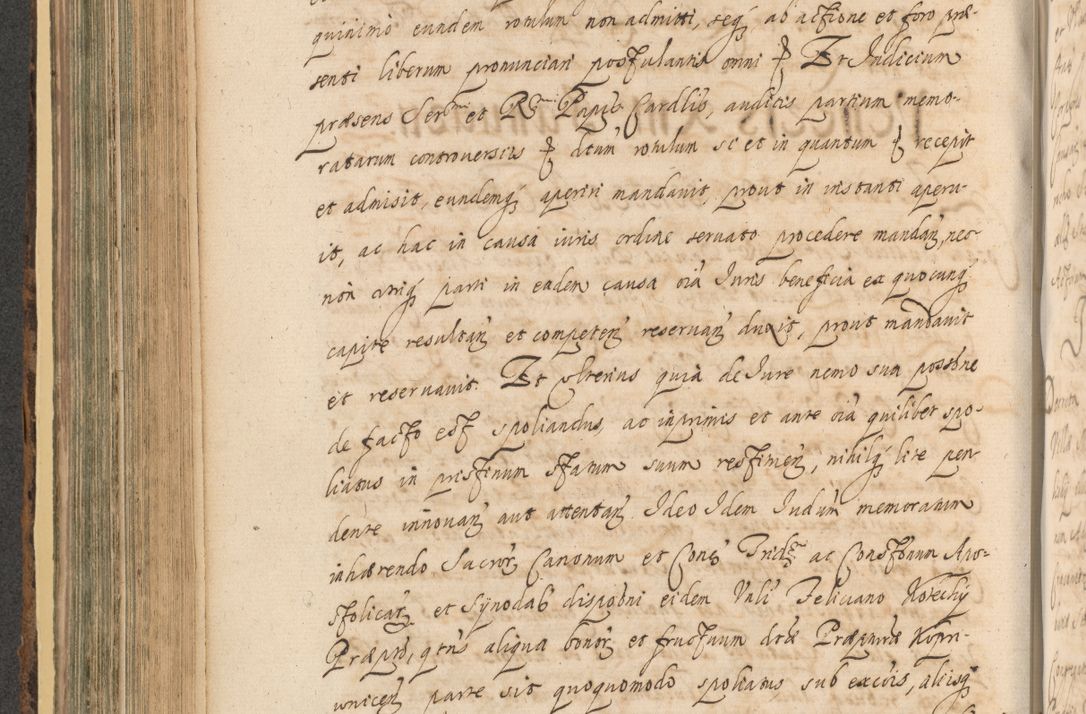 quinimo eundem rotulum non admitti, seq₃ ab actione et foro præ-
senti liberum pronunciari postulantis omni ꝑ Et Iudicium
præsens Serᵐⁱ et Rᵐⁱ Papis Cardlis, auditis partium memo-
ratarum controversiis ꝑ dtum rotulum si et in quantum ꝑ recepit
et admisit, eundemq₃ aperiri mandavit, prout in instanti aperu-
it, ac hac in causa iuris ordine servato procedere mandan₃, nec-
non utriq₃ parti in eadem causa oia Iuris beneficia ex quocunq₃
capite resultan₃ et competen₃ reservan₃ duxit, prout mandavit
et reservavit. Et ulterius quia de Iure nemo sua possone
de facto est spoliandus, ac inprimis et ante oia quilibet spo-
liatus in pristinum statum suum restituen₃, nihilq₃ lite pen-
dente innovan₃ aut attentan₃ Ideo Idem Iudium memoratum
inhærendo Sacror₃ Canonum et Cons₃ Trid₃ ac Constonum Apo-
stolicar₃ et Synodab dispobni eidem Vnli Feliciano Kotechy
Præpto, qtns aliqua bonor₃ et fructuum dtæ Præpturæ Kopri-
unicen₃ parte sit quoquomodo spoliatus sub excois, aliisq₃